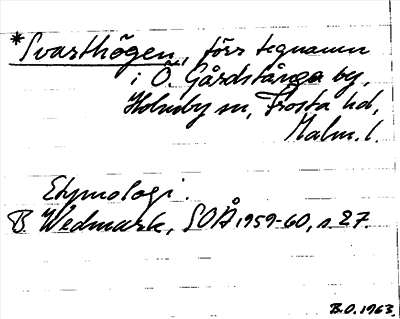 *Svarthögen, förr tegnamn
i Ö. Gårdstånga by,
Holmby sn, Frosta hd,
Malm. l.
Etymologi.
B Wedmark, SOÅ 1959-60, s. 27.
B.O. 1963.